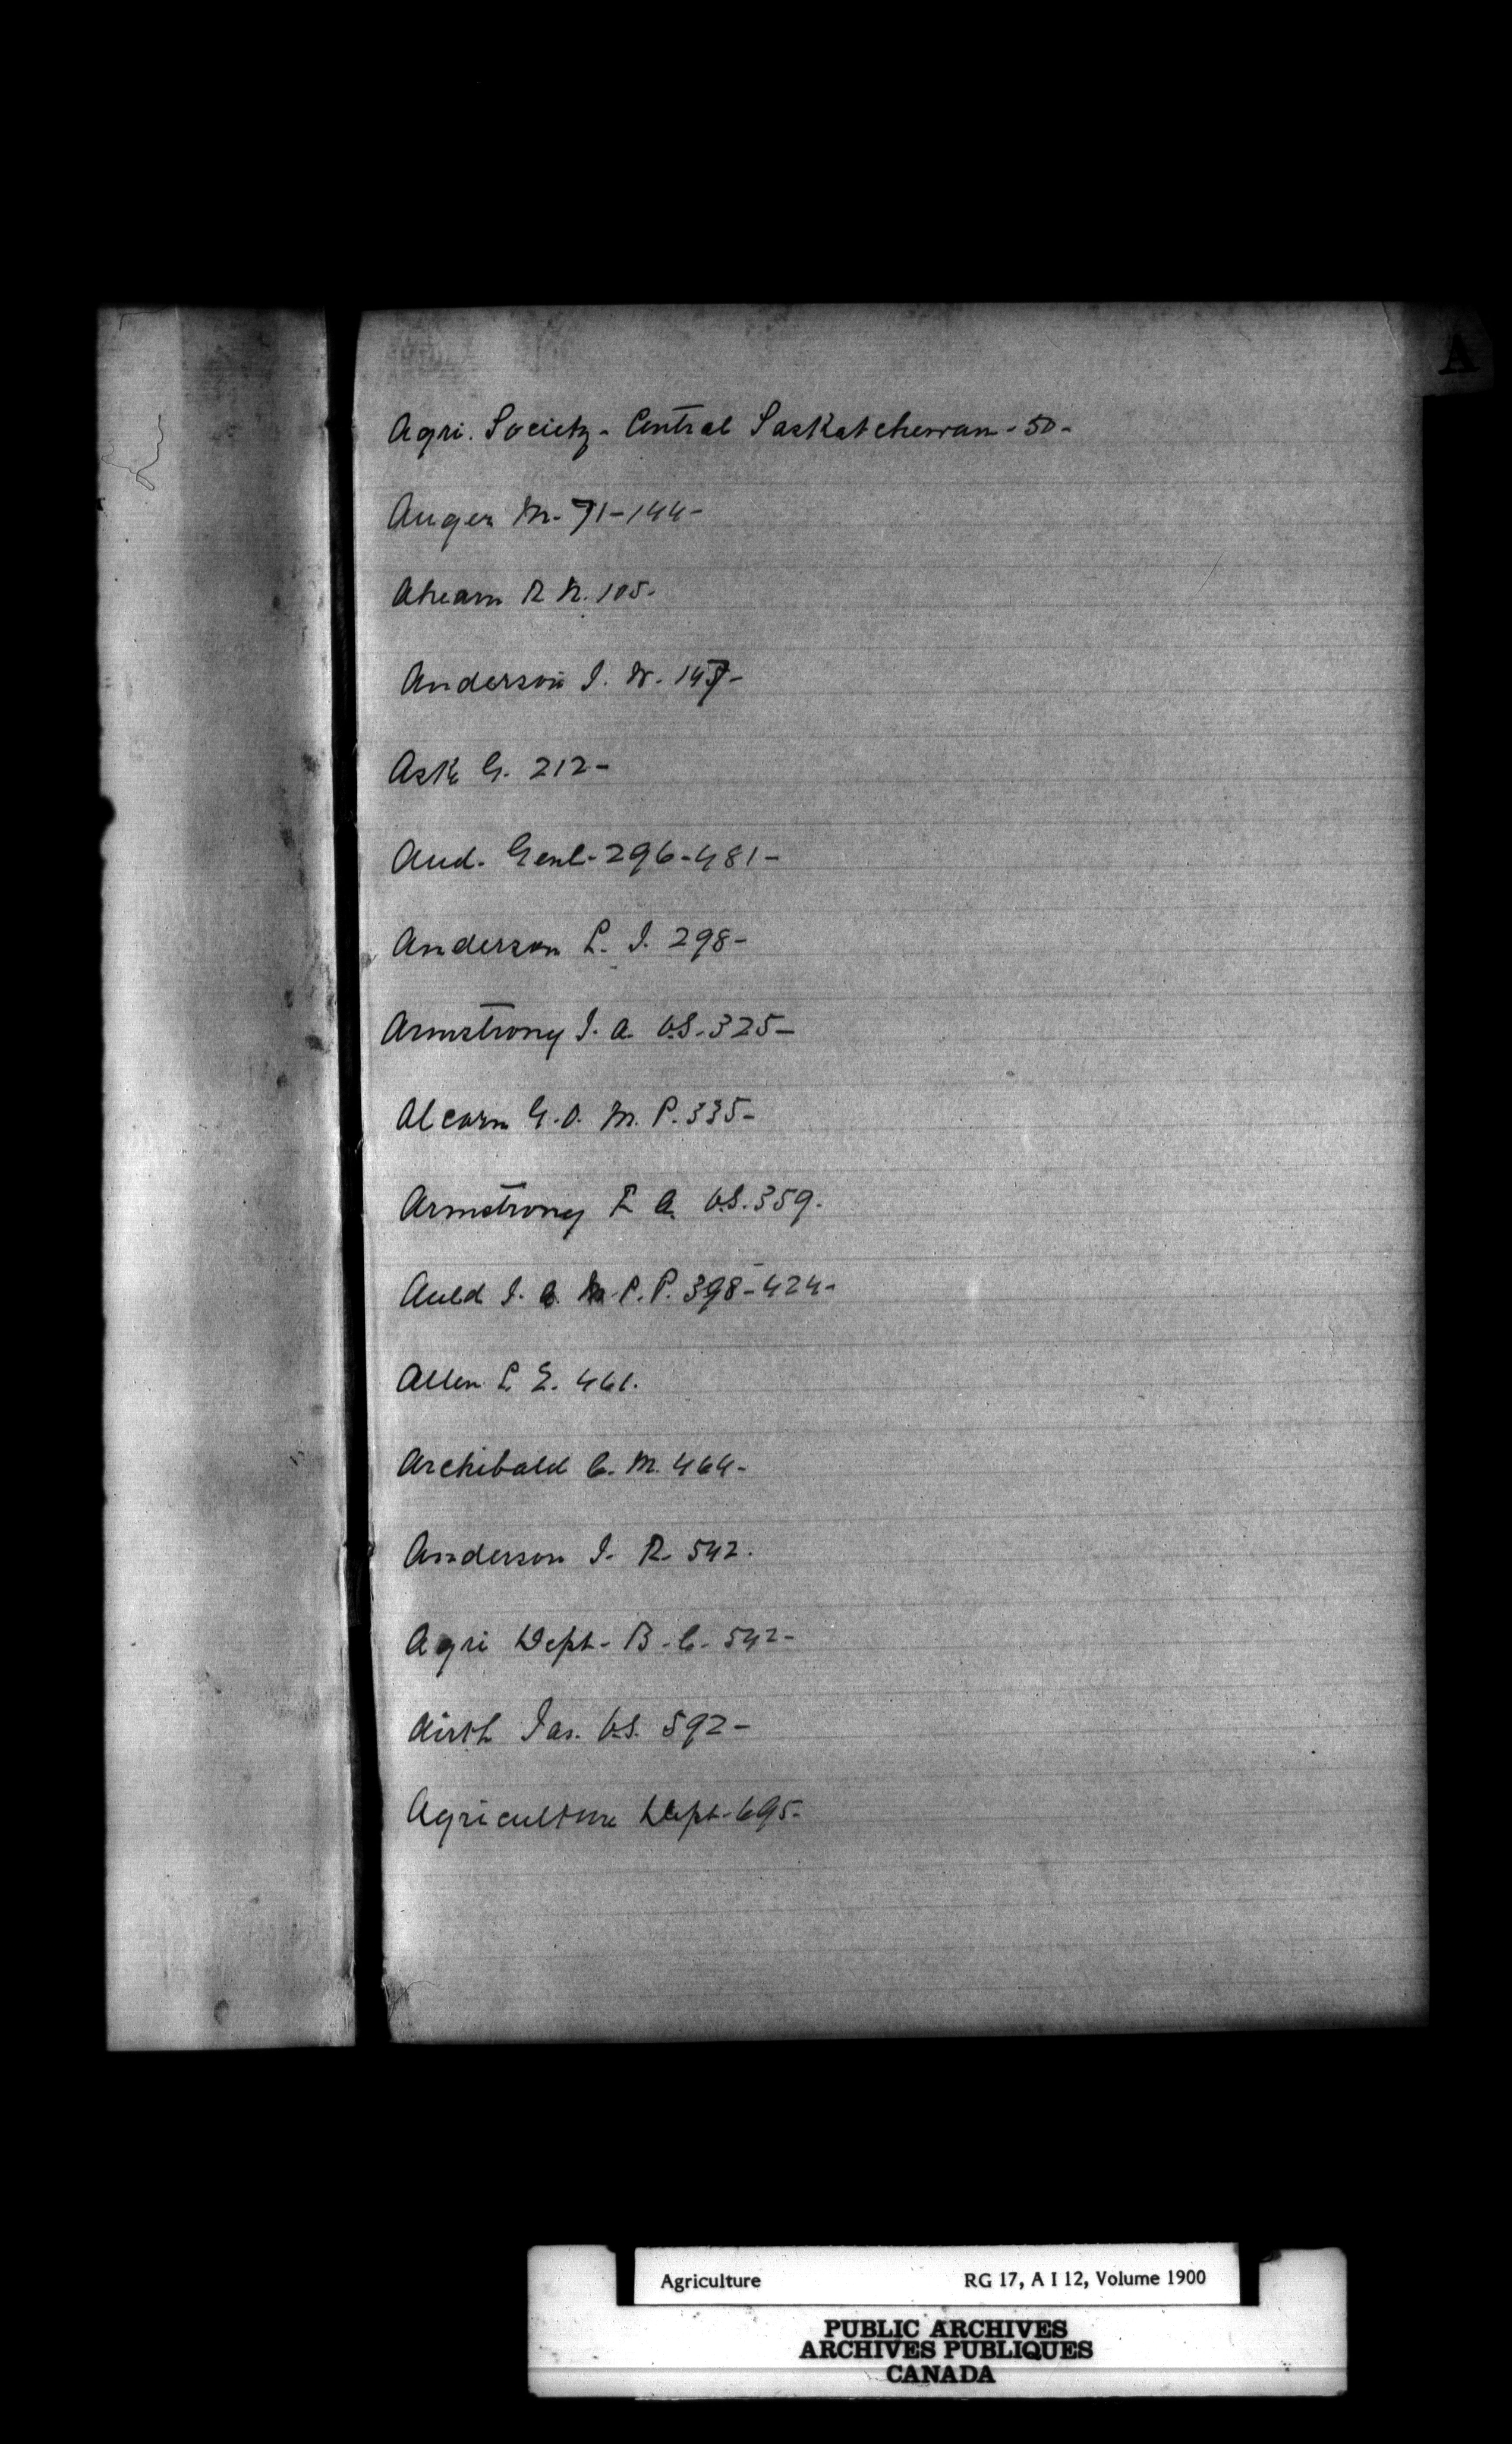 A
Agri. Society - Central Saskatchewan - 50 -
Auger M - 71 - 144 -
Ahearn R N. 105 -
Anderson J. W. 147 -
Ask G. 212 -
Aud. Genl - 296 - 481 -
Anderson L. J. 298 -
Armstrong J. A. V.S. 325 -
Alcorn G. O. M. P. 335 -
Armstrong A. V.S. 359.
Auld J. A. M. P. P. 398 - 424 -
Allen L E. 461.
Archibald C. M. 464 -
Anderson J. R. 542.
Agri Dept - B. C. 542 -
Airth Jas. V.S. 592 -
Agriculture Dept - 695 -
Agriculture RG 17, A I 12, Volume 1900
PUBLIC ARCHIVES
ARCHIVES PUBLIQUES
CANADA